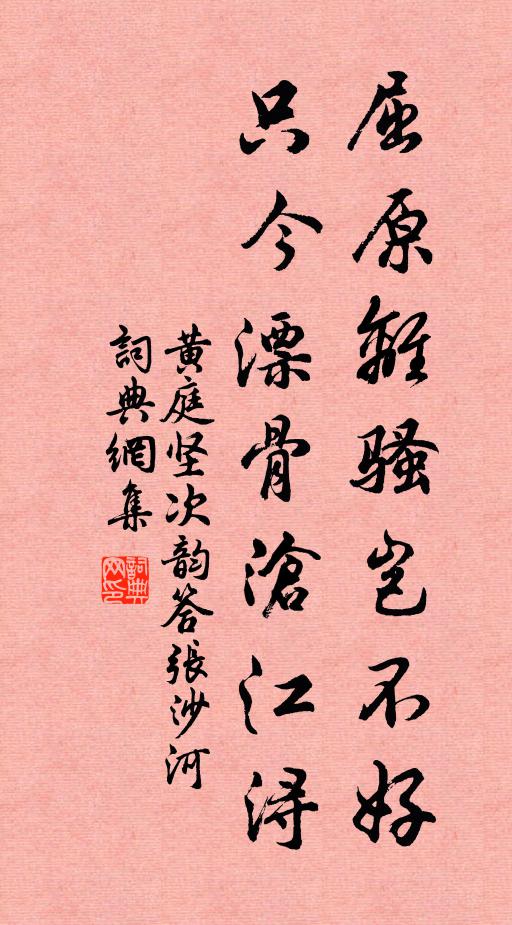 屈原離騷岂不好
只今漂骨滄江浔
黄庭坚次韵答張沙河
詞典網集
詞典网印